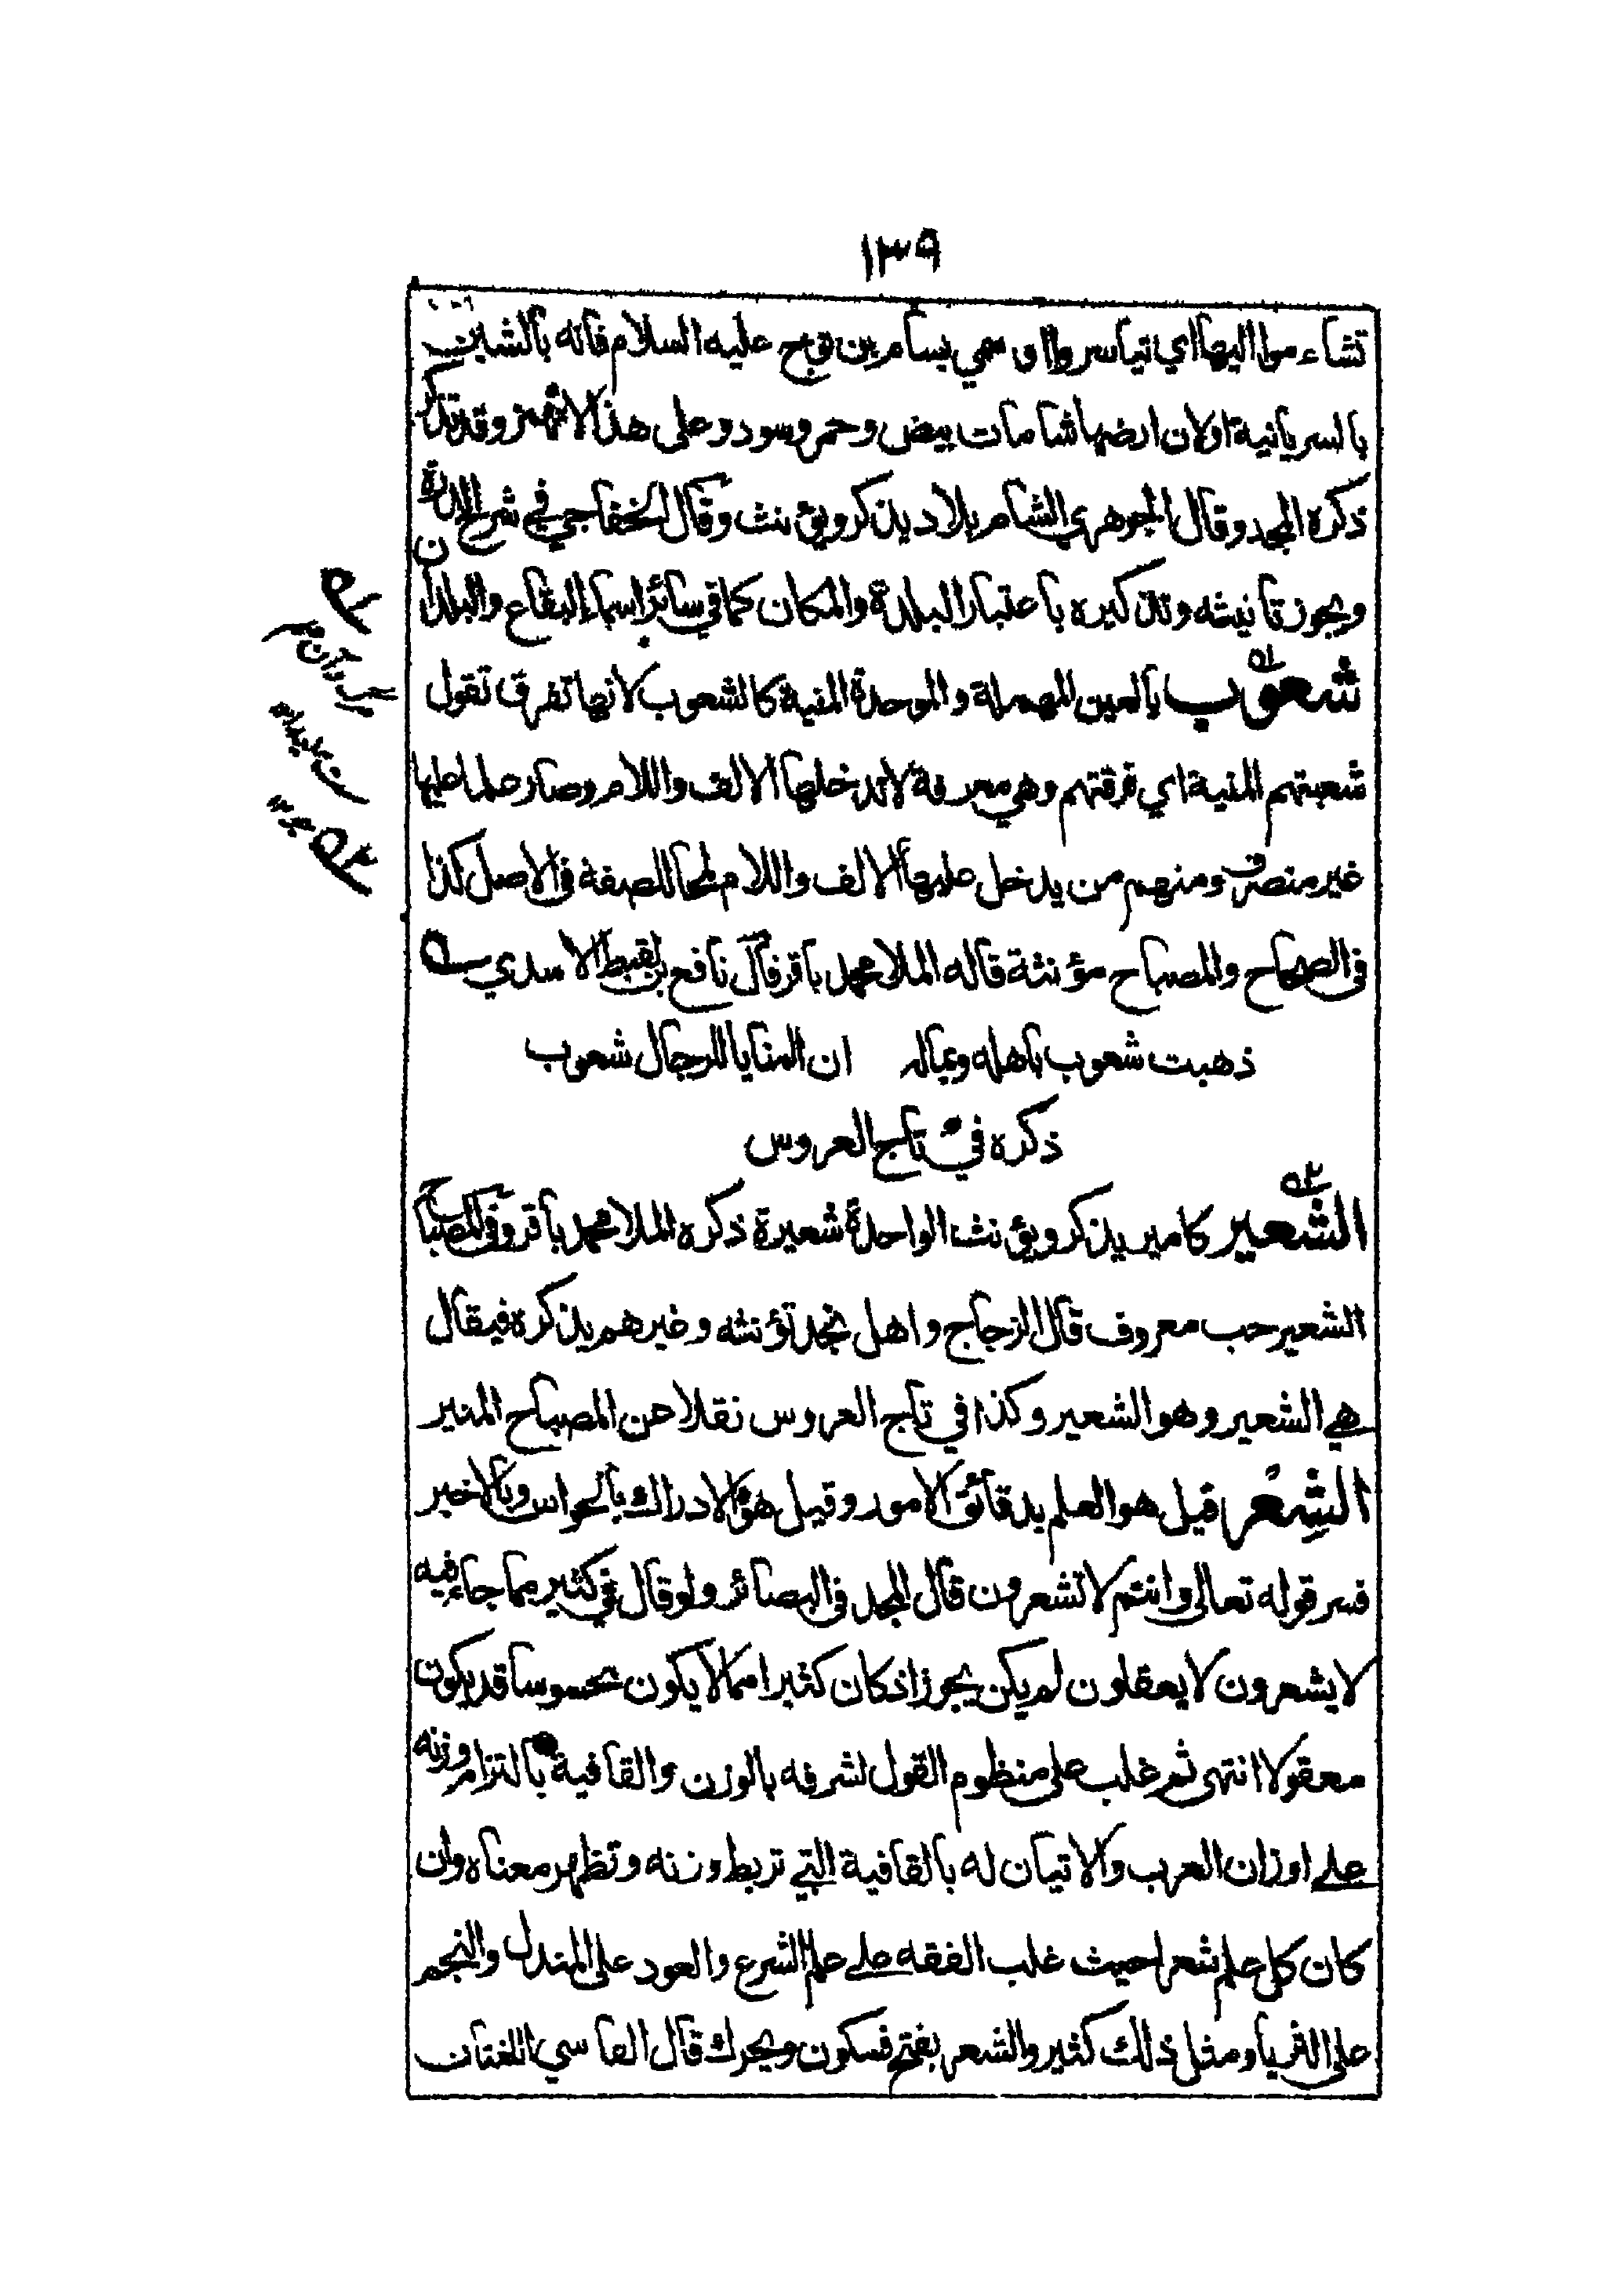 ١٣٩
تشاءموا اليها اي تياسروا او سمي بسام بن نوح عليه السلام فانه بالشين
بالسريانية او لان ارضها شامات بيض وحمر وسود وعلى هذا لا تهمز وقد تذكر
ذكره المجد وقال الجوهري الشام بلاد يذكر ويؤنث وقال الخفاجي في شرح الدرة
ويجوز تانيثه وتذكيره باعتبار البلدة والمكان كما في سائر اسماء البقاع والبلدان
شعوب بالعين المهملة والموحدة المنية كالشعوب لانها تفرق تقول
شعبتهم المنية اي فرقتهم وهي معرفة لا تدخلها الالف واللام وصار علما عليها
غير منصرف ومنهم من يدخل عليها الالف واللام لمحا للصفة في الاصل كذا
في الصحاح والمصباح مؤنثة قاله الملا محمد باقر قال نافع بن لقيط الاسدي
ذهبت شعوب باهله وبماله ان المنايا للرجال شعوب
ذكره في تاج العروس
الشعير كامير يذكر ويؤنث الواحدة شعيرة ذكره الملا محمد باقر وفي المصباح
الشعير حب معروف قال الزجاج واهل نجد تؤنثه وغيرهم يذكره فيقال
هي الشعير وهو الشعير وكذا في تاج العروس نقلا عن المصباح المنير
الشِعْر قيل هو العلم بدقائق الامور وقيل هو الادراك بالحواس وبالاخير
فسر قوله تعالى وانتم لا تشعرون قال المجد في البصائر ولو قال في كثير مما جاء فيه
لا يشعرون لا يعقلون لم يكن يجوز اذ كان كثيرا مما لا يكون محسوسا قد يكون
معقولا انتهى ثم غلب على منظوم القول لشرفه بالوزن والقافية بالتزام وزنه
على اوزان العرب والاتيان له بالقافية التي تربط وزنه وتظهر معناه وان
كان كل علم شعرا حيث غلب الفقه على علم الشرع والعود على المندل والنجم
على الثريا ومثل ذلك كثير والشعر بفتح فسكون ويحرك قال الفاسي اللغتان